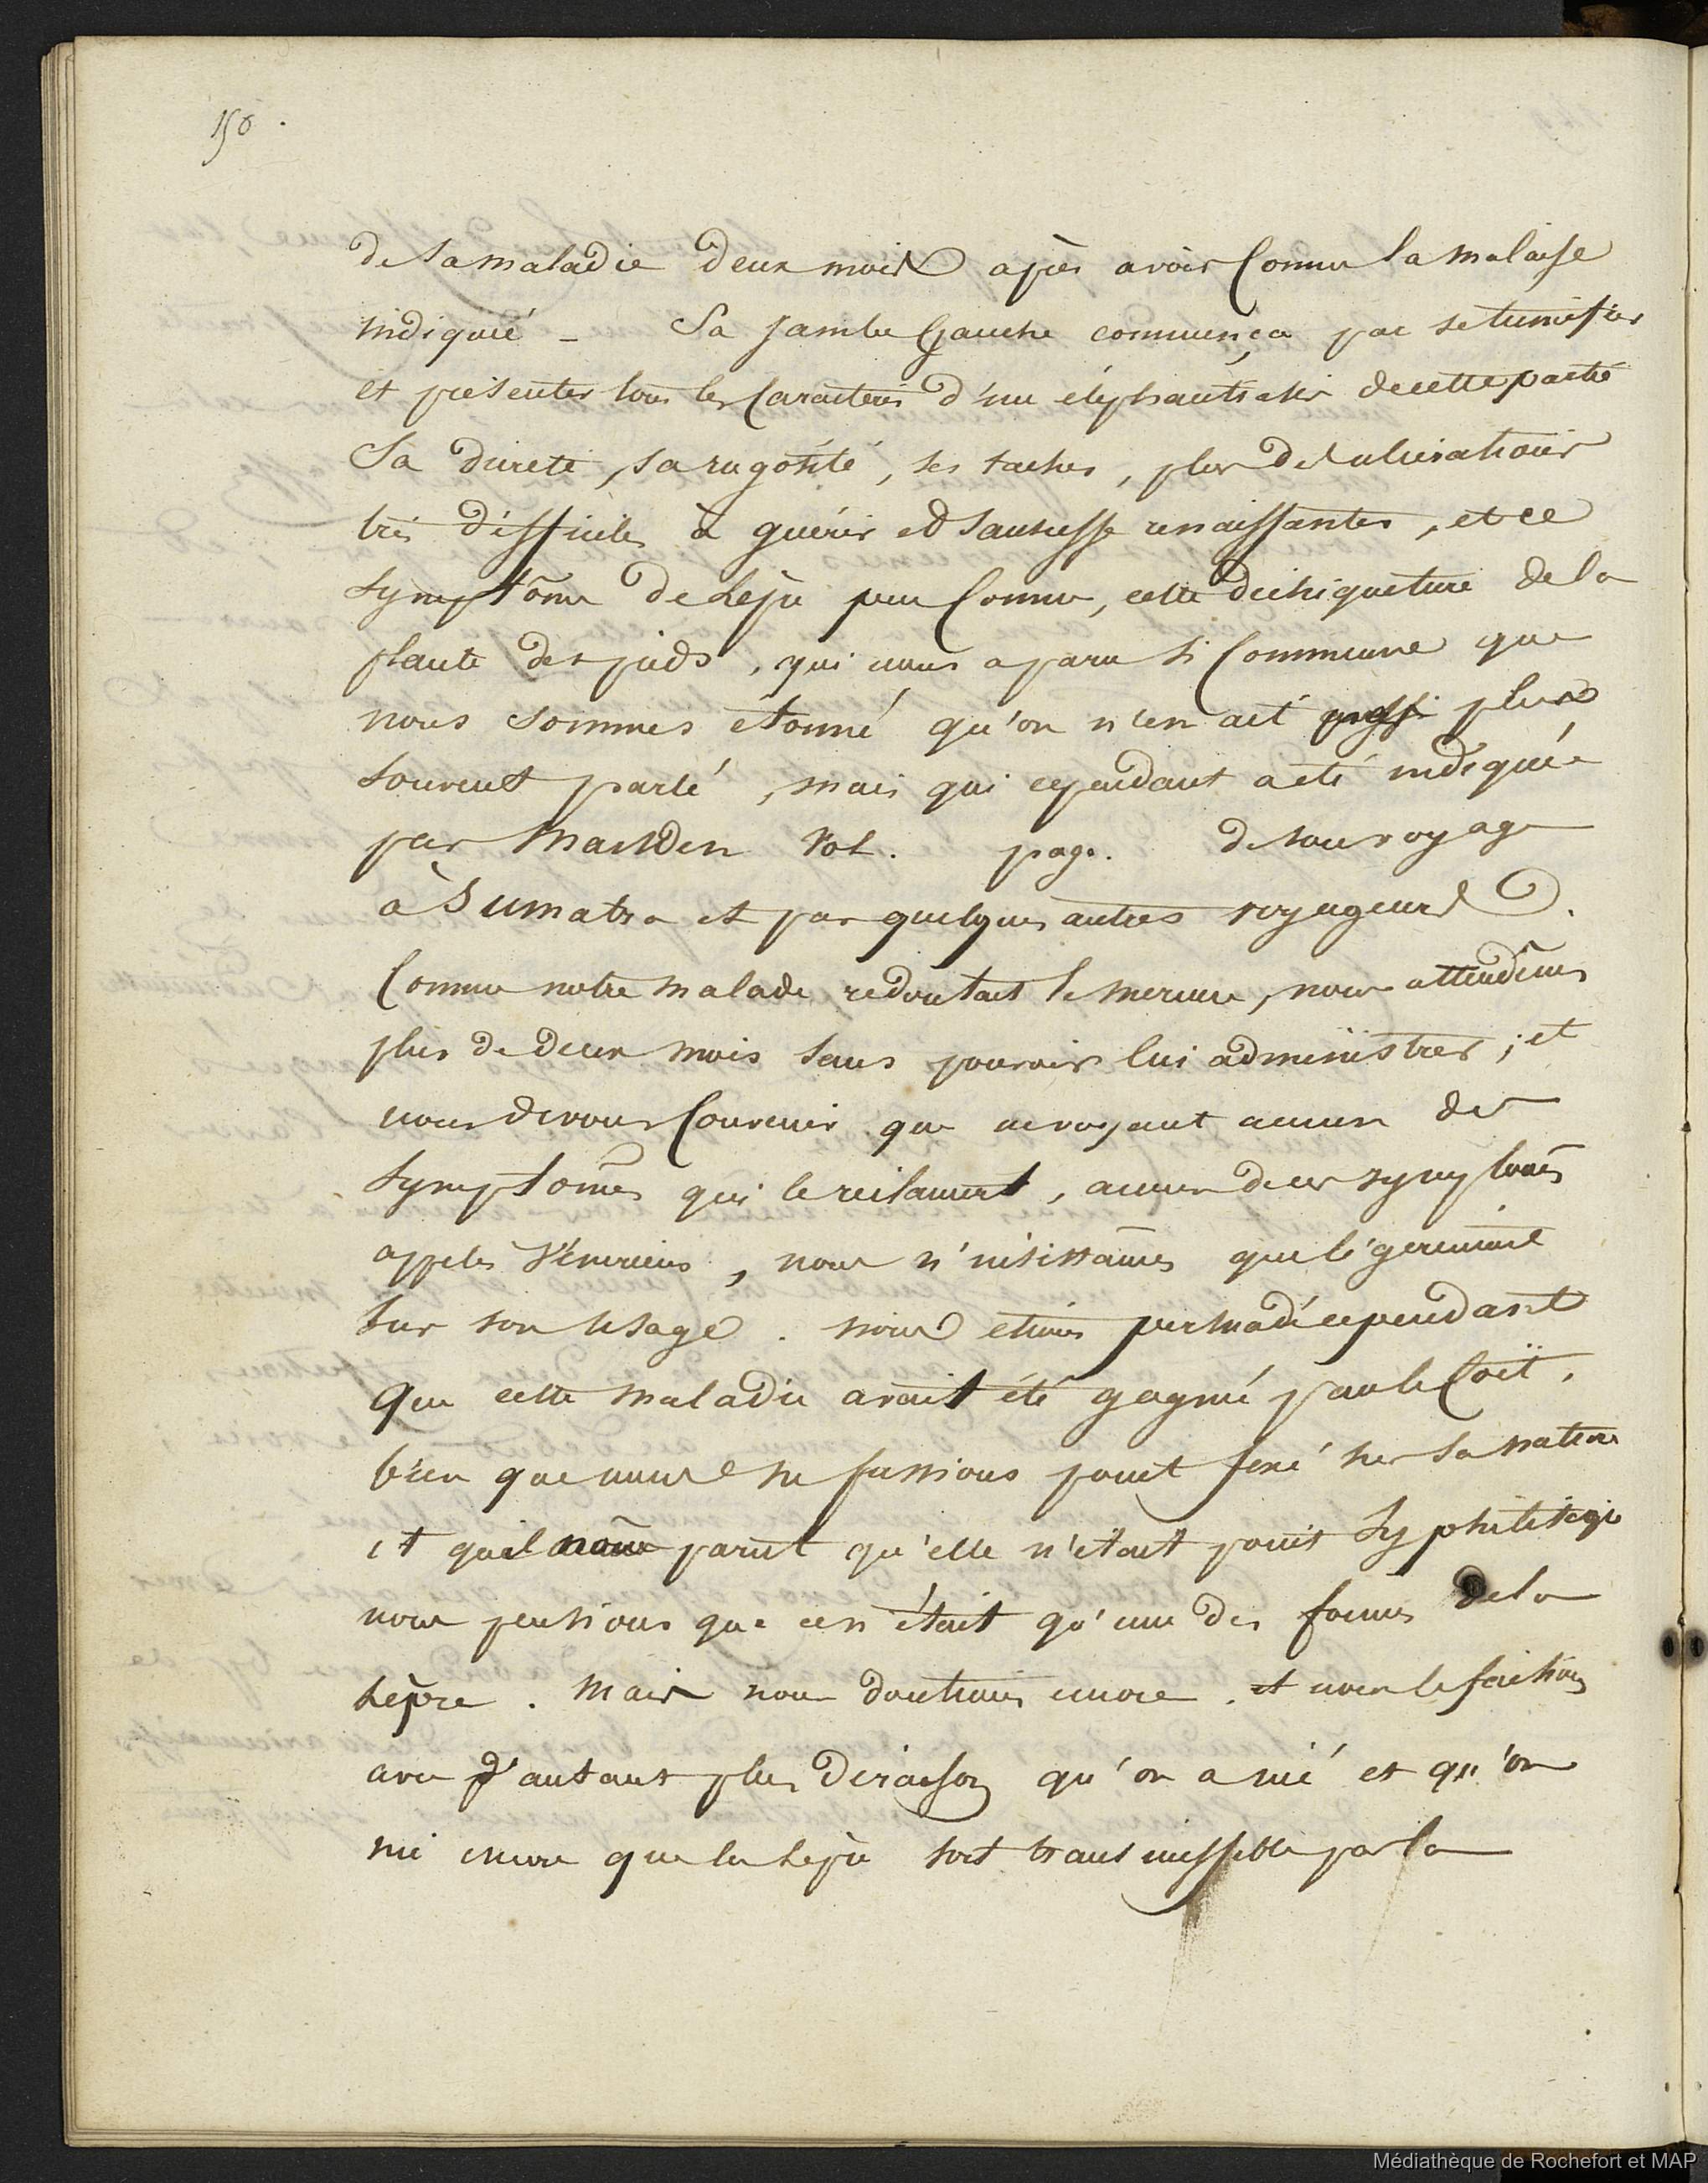 150.
de sa maladie deux mois après avoir connu la malaise
indiqué - Sa jambe Gauche commença par se tumefier
et présenter tous les Caractères d'une éléphantiasis de cette partie
Sa dureté, sa rugosité, ses taches, plus des ulcérations
très difficiles à guérir et sans cesse renaissantes, et ce
symptôme de Lèpre peu Connu, cette dechiqueture de la
plante des pieds, qui nous a paru si Commune que
nous sommes étonné qu'on n'en ait plus
souvent parlé, mais qui cependant a été indiquée
par Marsden Vol. page. de son voyage
à Sumatra et par quelques autres voyageurs.
Comme notre malade redoutait le mercure, nous attendîmes
plus de deux mois sans pouvoir lui administrer ; et
nous devons Convenir que ne voyant aucun des
symptômes qui le reclament, aucun de ces symptômes
appelés Vénériens, nous n'insistâmes que légerement
sur son usage. nous étions persuadé cependant
que cette maladie avait été gagné par le Coït,
bien que nous ne fussions point fixé sur sa nature
et qu'il nous parut qu'elle n'etait point Syphilitiqe
nous pensions que ce n'était qu'une des formes de la
Lèpre. Mais nous doutions encore. et nous le faisions
avec d'autant plus de raison qu'on a nié et qu'on
nie encore que la Lèpre soit transmissible par la
Médiathèque de Rochefort et MAP